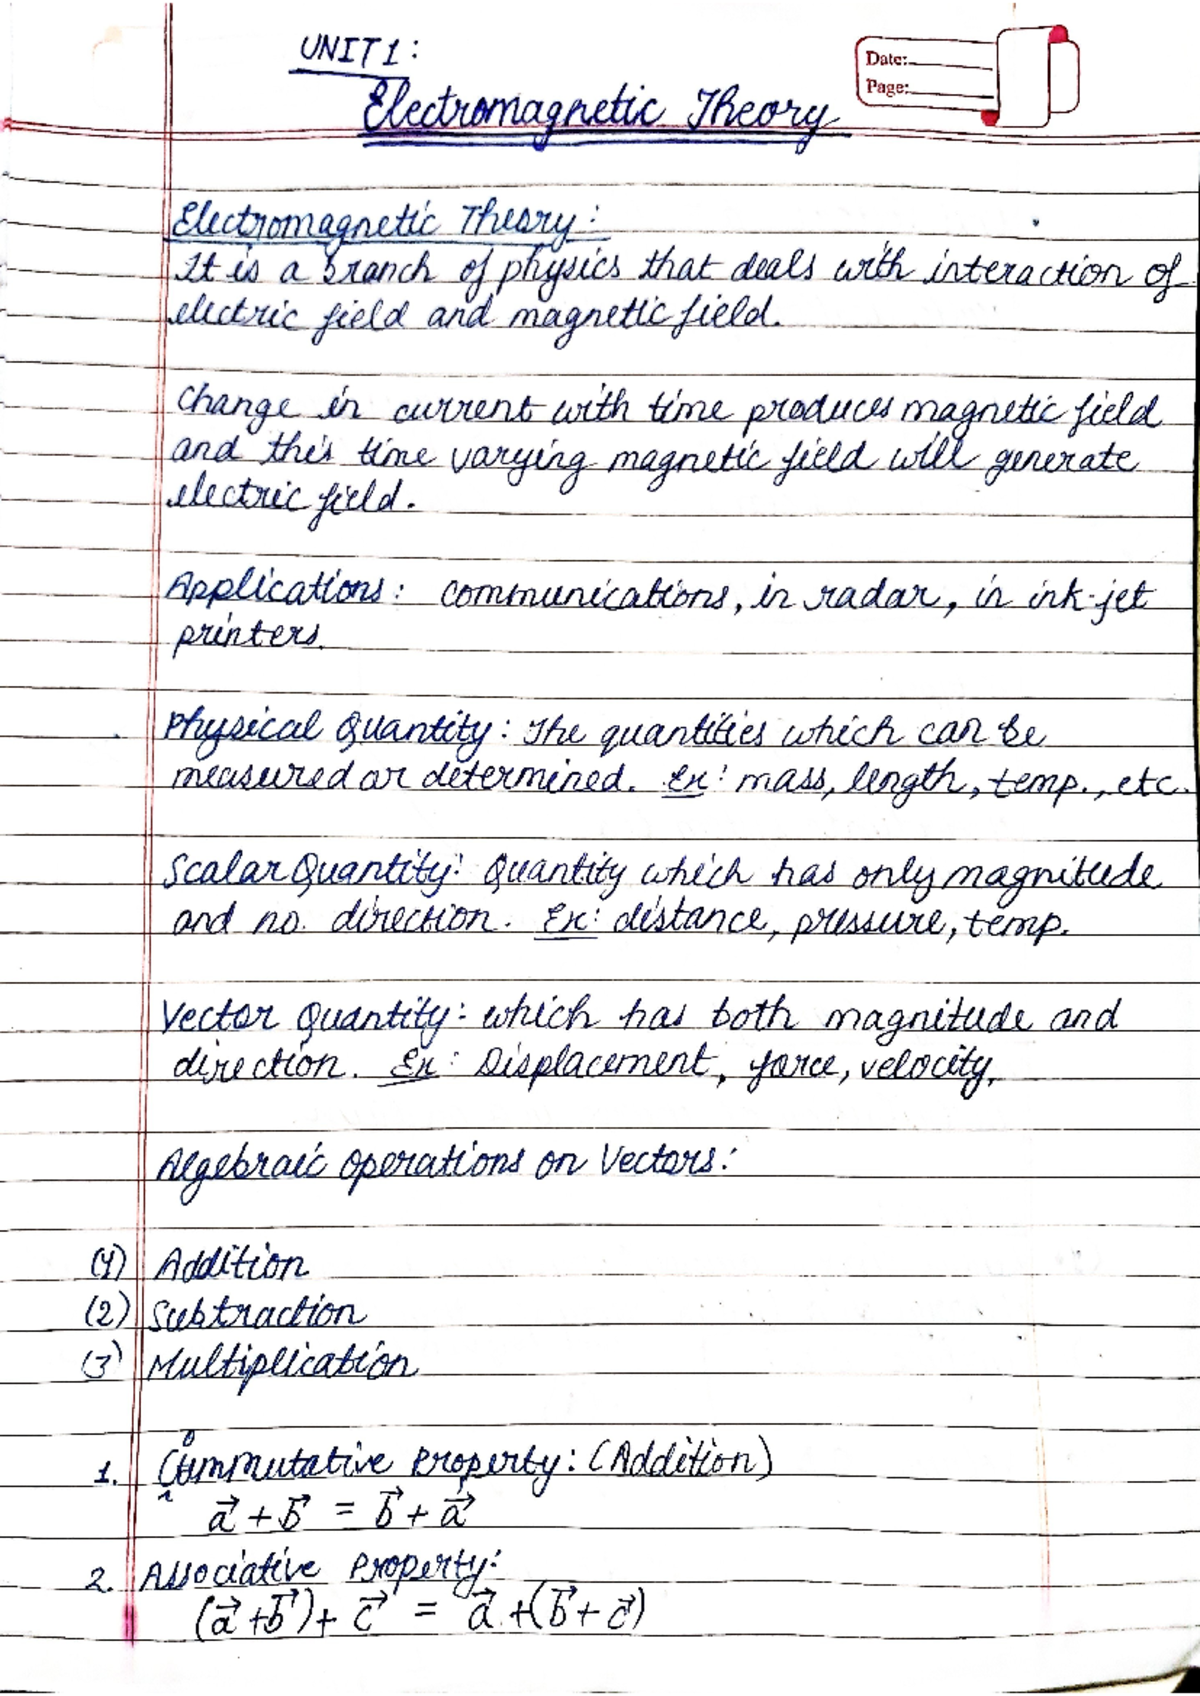 UNIT 1:
Date:
Page:
Electromagnetic Theory
Electromagnetic Theory:
It is a branch of physics that deals with interaction of
electric field and magnetic field.
Change in current with time produces magnetic field
and this time varying magnetic field will generate
electric field.
Applications: communications, in radar, in ink-jet
printers.
Physical Quantity: The quantities which can be
measured or determined. Ex: mass, length, temp., etc.
Scalar Quantity: Quantity which has only magnitude
and no. direction. Ex: distance, pressure, temp.
Vector Quantity: which has both magnitude and
direction. Ex: Displacement, force, velocity,
Algebraic operations on Vectors:
(1) Addition
(2) Subtraction
(3) Multiplication
1. Commutative Property: (Addition)
a⃗ + b⃗ = b⃗ + a⃗
2. Associative Property:
(a⃗ + b⃗) + c⃗ = a⃗ + (b⃗ + c⃗)